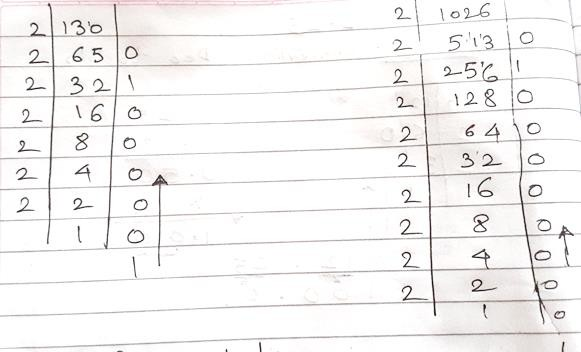 2 130
2 65 0
2 32 1
2 16 0
2 8 0
2 4 0
2 2 0
1 0
1
2 1026
2 513 0
2 256 1
2 128 0
2 64 0
2 32 0
2 16 0
2 8 0
2 4 0
2 2 0
1 0